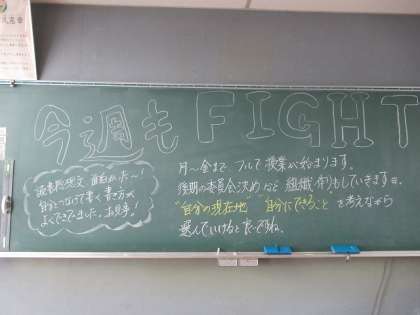 今週も FIGHT
読書感想文 面白かった〜!
自分とつなげて書く書き方が
よくできてました。お見事!
月〜金まで フルで 授業が始まります。
後期の委員会決めなど 組織作りもしていきます。
"自分の現在地" "自分にできること" を考えながら
選んでいけると良いですね。